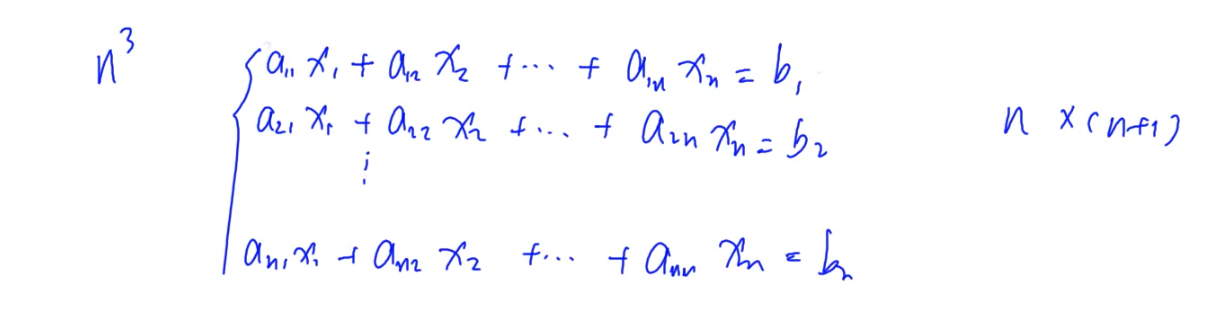 n³
a₁₁ x₁ + a₁₂ x₂ + ⋯ + a₁ₙ xₙ = b₁
a₂₁ x₁ + a₂₂ x₂ + ⋯ + a₂ₙ xₙ = b₂
n × (n+1)
⋮
aₙ₁ x₁ + aₙ₂ x₂ + ⋯ + aₙₙ xₙ = bₙ